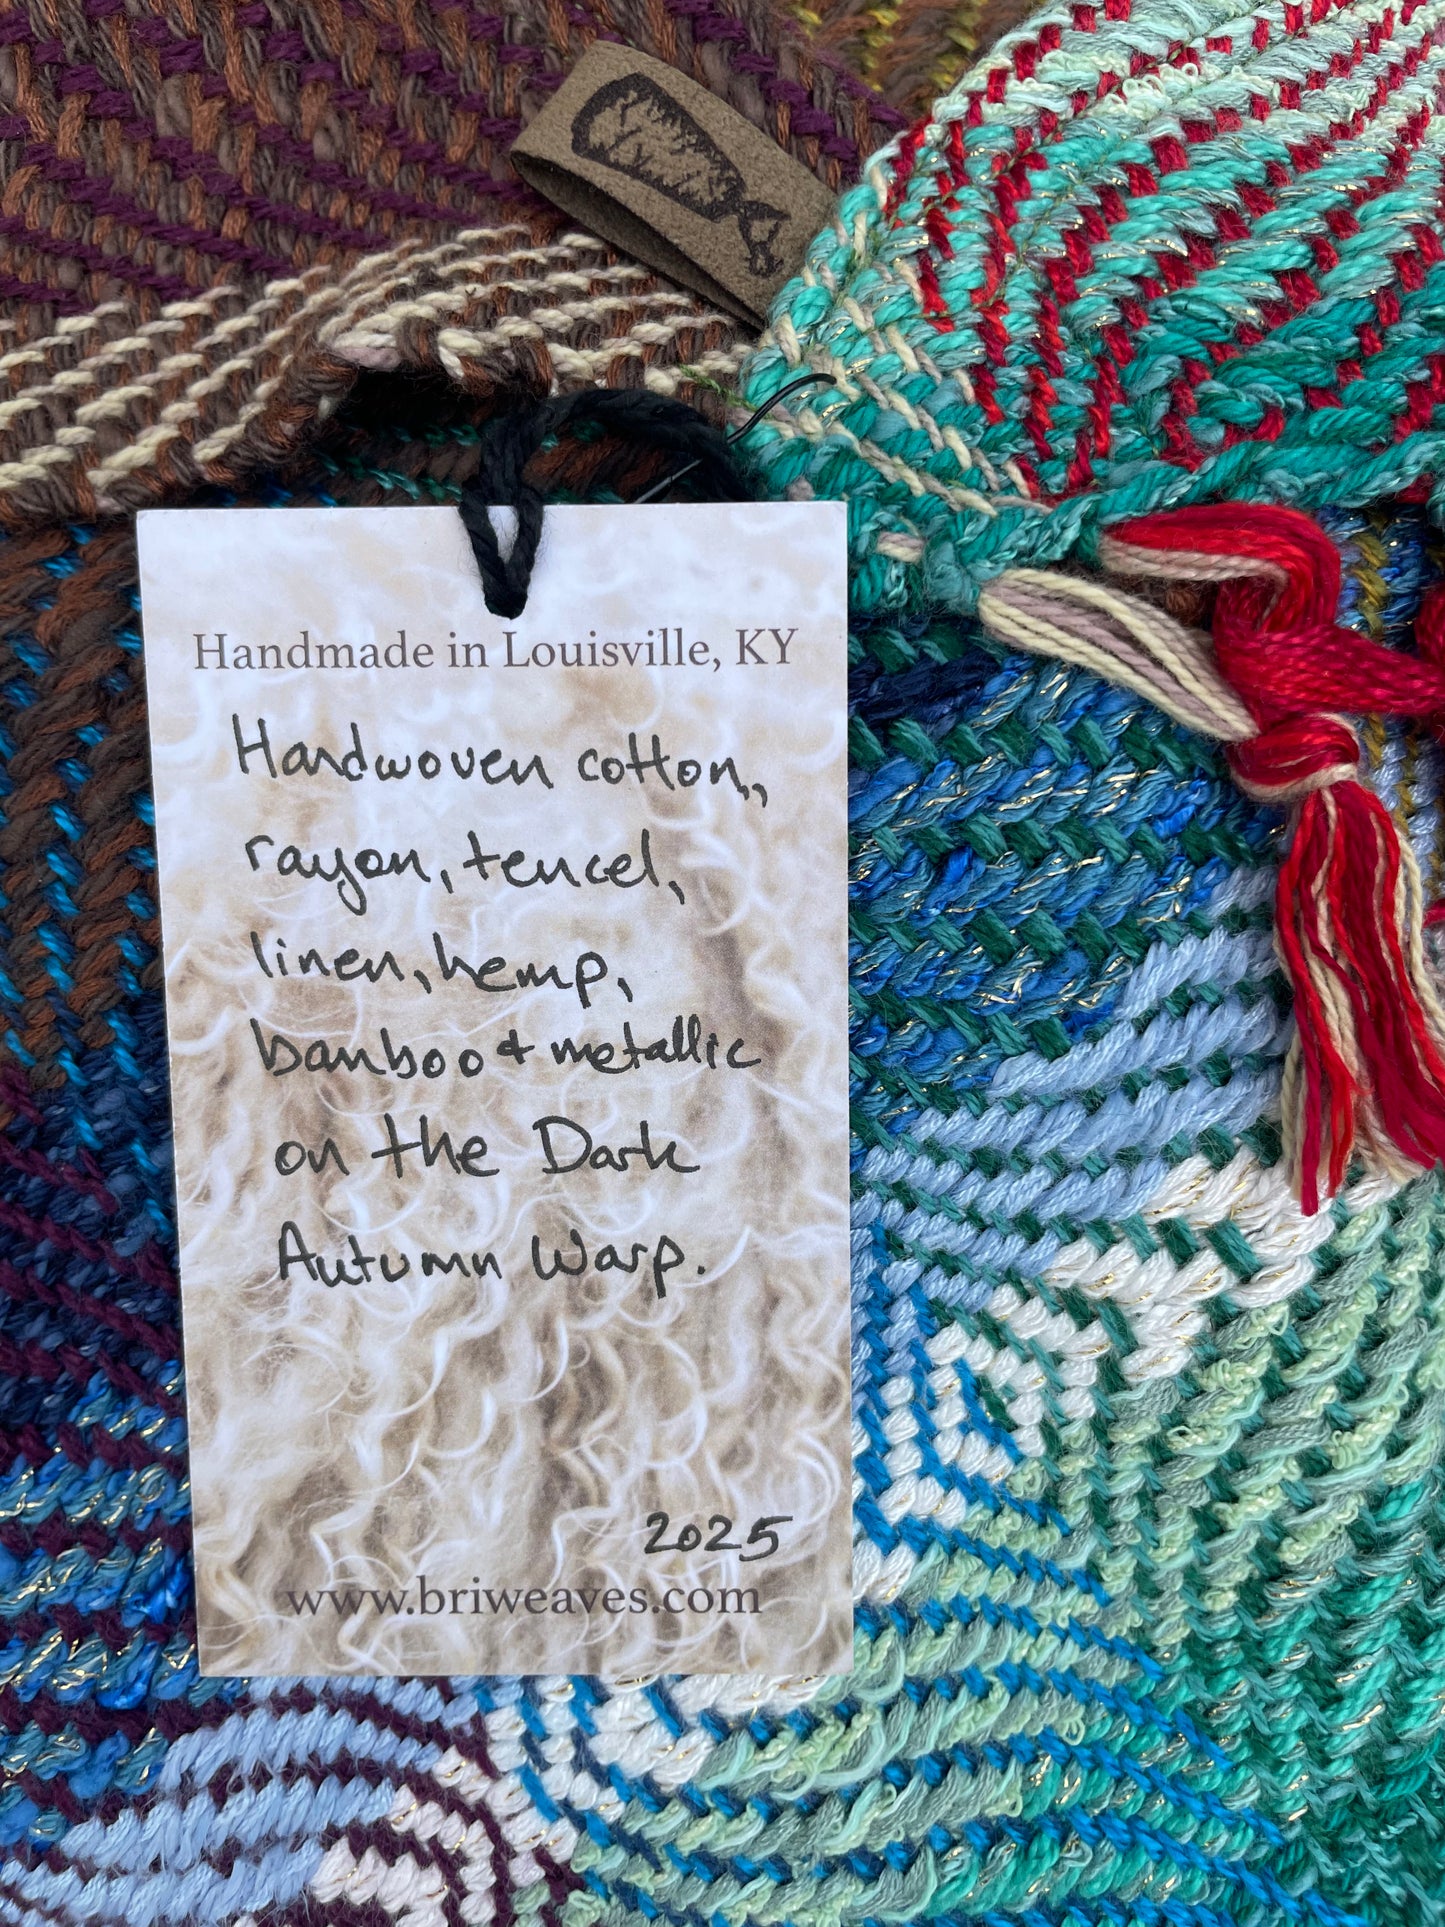 Handmade in Louisville, KY
Handwoven cotton,,
rayon, tencel,
linen, hemp,
bamboo & metallic
on the Dark
Autumn Warp.
2025
www.briweaves.com